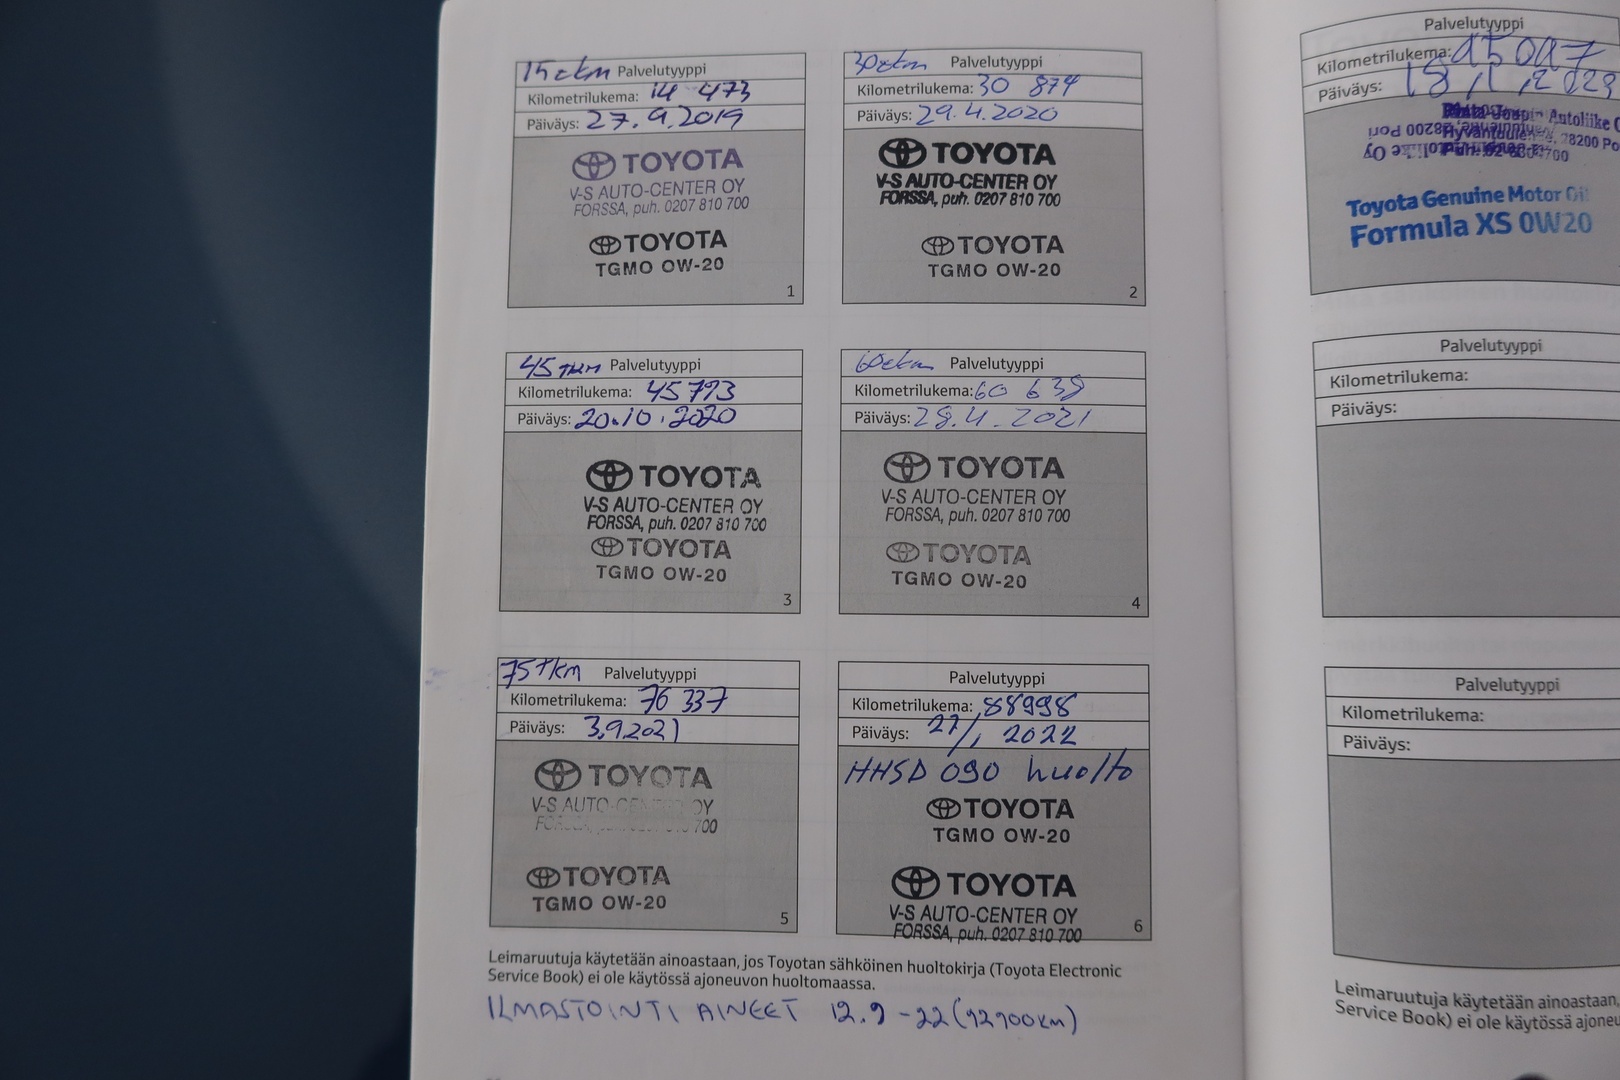 15 tkm Palvelutyyppi
Kilometrilukema: 14 473
Päiväys: 27.9.2019
TOYOTA
V-S AUTO-CENTER OY
FORSSA, puh. 0207 810 700
TOYOTA
TGMO OW-20
1
30 tkm Palvelutyyppi
Kilometrilukema: 30 874
Päiväys: 29.4.2020
TOYOTA
V-S AUTO-CENTER OY
FORSSA, puh. 0207 810 700
TOYOTA
TGMO OW-20
2
45 TKM Palvelutyyppi
Kilometrilukema: 45 793
Päiväys: 20.10.2020
TOYOTA
V-S AUTO-CENTER OY
FORSSA, puh. 0207 810 700
TOYOTA
TGMO OW-20
3
60 tkm Palvelutyyppi
Kilometrilukema: 60 638
Päiväys: 28.4.2021
TOYOTA
V-S AUTO-CENTER OY
FORSSA, puh. 0207 810 700
TOYOTA
TGMO OW-20
4
75 tkm Palvelutyyppi
Kilometrilukema: 76 337
Päiväys: 3.9.2021
TOYOTA
V-S AUTO-CENTER OY
FORSSA, 700
TOYOTA
TGMO OW-20
5
Palvelutyyppi
Kilometrilukema: 88998
Päiväys: 27/1 2022
HHSD 090 huolto
TOYOTA
TGMO OW-20
TOYOTA
V-S AUTO-CENTER OY
FORSSA, puh. 0207 810 700
6
Leimaruutuja käytetään ainoastaan, jos Toyotan sähköinen huoltokirja (Toyota Electronic
Service Book) ei ole käytössä ajoneuvon huoltomaassa.
ILMASTOINTI AINEET 12.9 -22 (92900km)
Palvelutyyppi
Kilometrilukema:
Päiväys: 18.1.2023
Autoliike
28200
Toyota Genuine Motor Oil
Formula XS 0W20
Palvelutyyppi
Kilometrilukema:
Päiväys:
Palvelutyyppi
Kilometrilukema:
Päiväys:
Leimaruutuja käytetään ainoastaan,
Service Book) ei ole käytössä